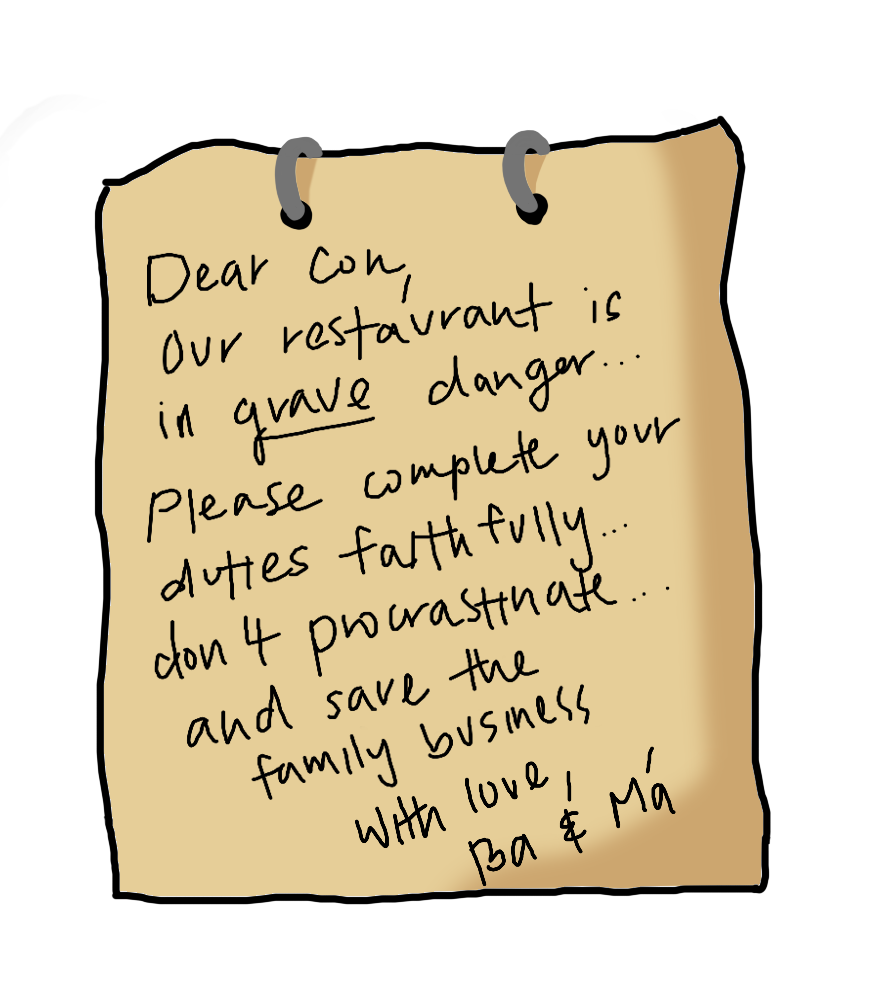 Dear Con,
Our restaurant is
in grave danger...
Please complete your
duties faithfully...
don't procrastinate...
and save the
family business
With love,
Ba & Má